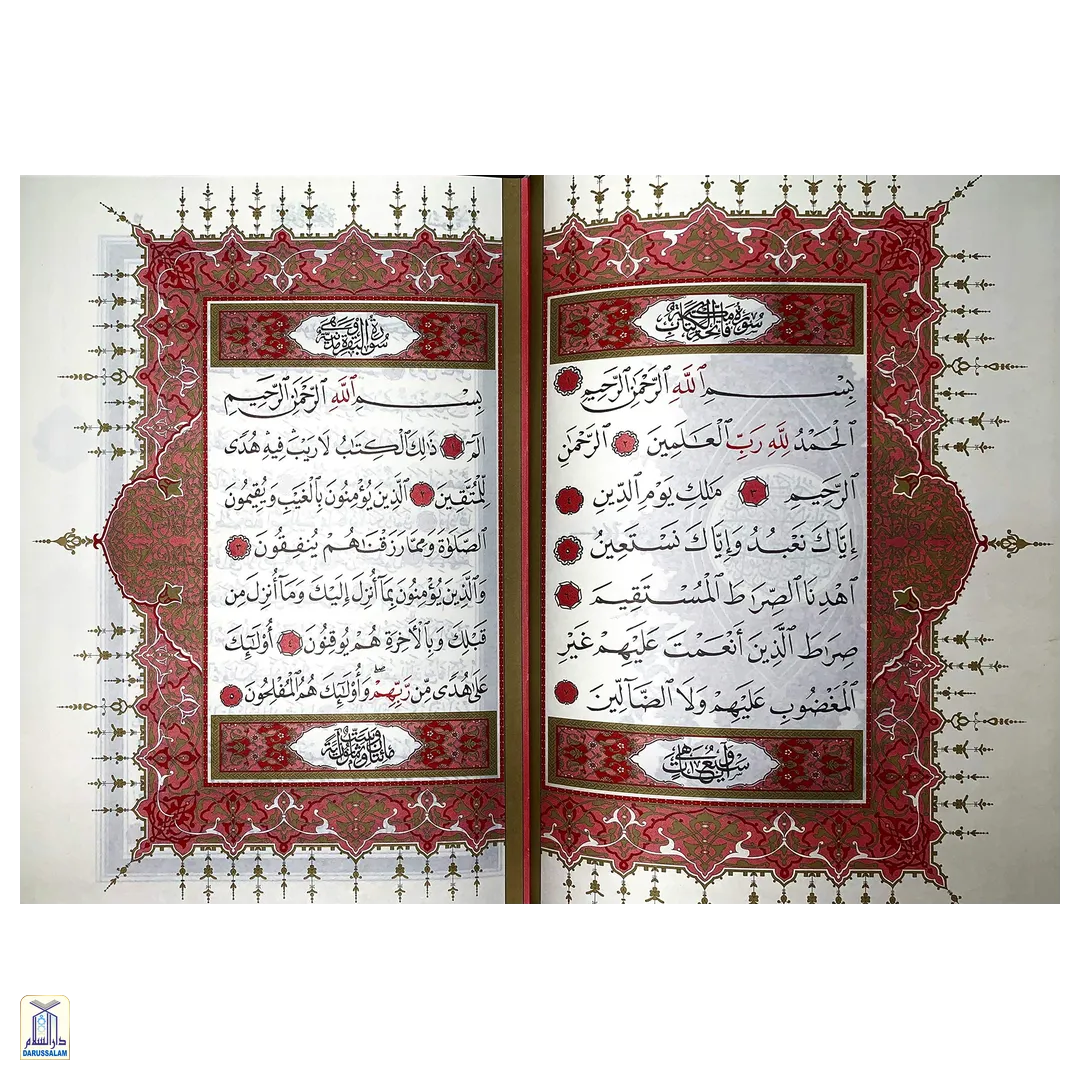 سُورَةُ فَاتِحَةِ الْكِتَابِ مَكِّيَّة
بِسْمِ ٱللَّهِ ٱلرَّحْمَٰنِ ٱلرَّحِيمِ ١
ٱلْحَمْدُ لِلَّهِ رَبِّ ٱلْعَٰلَمِينَ ٢ ٱلرَّحْمَٰنِ
ٱلرَّحِيمِ ٣ مَٰلِكِ يَوْمِ ٱلدِّينِ ٤
إِيَّاكَ نَعْبُدُ وَإِيَّاكَ نَسْتَعِينُ ٥
ٱهْدِنَا ٱلصِّرَاطَ ٱلْمُسْتَقِيمَ ٦
صِرَاطَ ٱلَّذِينَ أَنْعَمْتَ عَلَيْهِمْ غَيْرِ
ٱلْمَغْضُوبِ عَلَيْهِمْ وَلَا ٱلضَّآلِّينَ ٧
وَهِيَ سَبْعُ آيَاتٍ
سُورَةُ الْبَقَرَةِ مَدَنِيَّة وَهِيَ
بِسْمِ ٱللَّهِ ٱلرَّحْمَٰنِ ٱلرَّحِيمِ
الٓمٓ ١ ذَٰلِكَ ٱلْكِتَٰبُ لَا رَيْبَ فِيهِ هُدًى
لِّلْمُتَّقِينَ ٢ ٱلَّذِينَ يُؤْمِنُونَ بِٱلْغَيْبِ وَيُقِيمُونَ
ٱلصَّلَوٰةَ وَمِمَّا رَزَقْنَٰهُمْ يُنفِقُونَ ٣
وَٱلَّذِينَ يُؤْمِنُونَ بِمَآ أُنزِلَ إِلَيْكَ وَمَآ أُنزِلَ مِن
قَبْلِكَ وَبِٱلْأَخِرَةِ هُمْ يُوقِنُونَ ٤ أُو۟لَٰٓئِكَ
عَلَىٰ هُدًى مِّن رَّبِّهِمْ ۖ وَأُو۟لَٰٓئِكَ هُمُ ٱلْمُفْلِحُونَ ٥
مِائَتَانِ وَسِتٌّ وَثَمَانُونَ آيَة
دارالسلام
DARUSSALAM